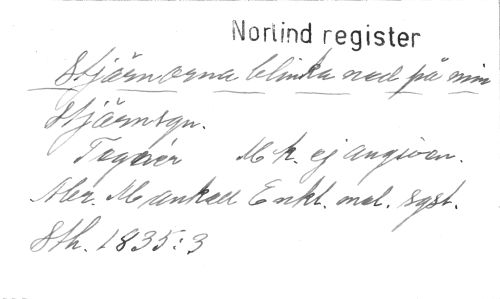 Norlind register
Stjärnorna blinka ned på min
Stjärnsgn.
Tegnér Mk. ej angiven.
Aber. Mankell Enkl. mel. syst.
Sth. 1835:3